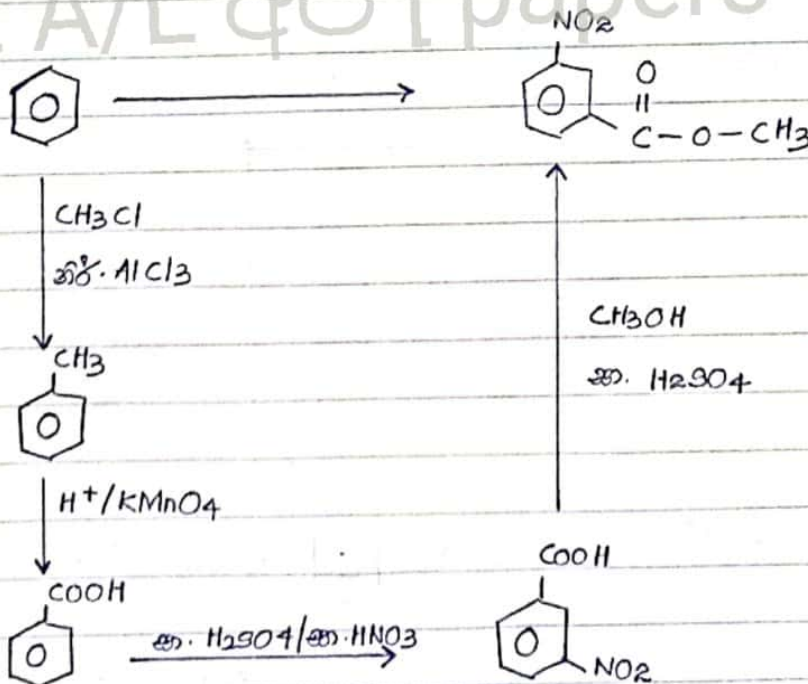 A/L දිටි papers
NO2
O
C-O-CH3
CH3Cl
නිර්. AlCl3
CH3
CH3OH
සා. H2SO4
H+/KMnO4
COOH
COOH
සා. H2SO4/සා. HNO3
NO2